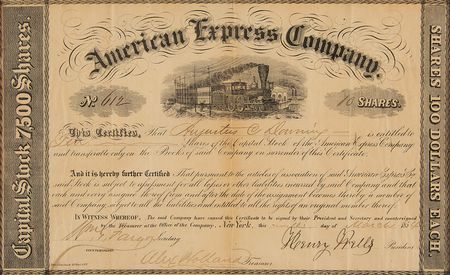 American Express Company.
Capital Stock 7,500 Shares.
SHARES 100 DOLLARS EACH.
No. 612
10 SHARES.
This Certifies, That Augustus C Downing is entitled to
Ten Shares of the Capital Stock of the American Express Company
and transferable only on the Books of said Company on surrender of this Certificate.
And it is hereby further Certified That pursuant to the articles of association of said American Express Co.
said Stock is subject to assessment for all losses or other liabilities incurred by said Company and that
each and every assignee thereof from and after the date of the assignment becomes thereby a member of
said Company, subject to all the liabilities and entitled to all the rights of an original member thereof.
IN WITNESS WHEREOF, The said Company have caused this Certificate to be signed by their President and Secretary and countersigned
by the Treasurer at the Office of the Company, New York, this day of March 185
Wm G Fargo Secretary
Henry Wells President
Alex Holland Treasurer